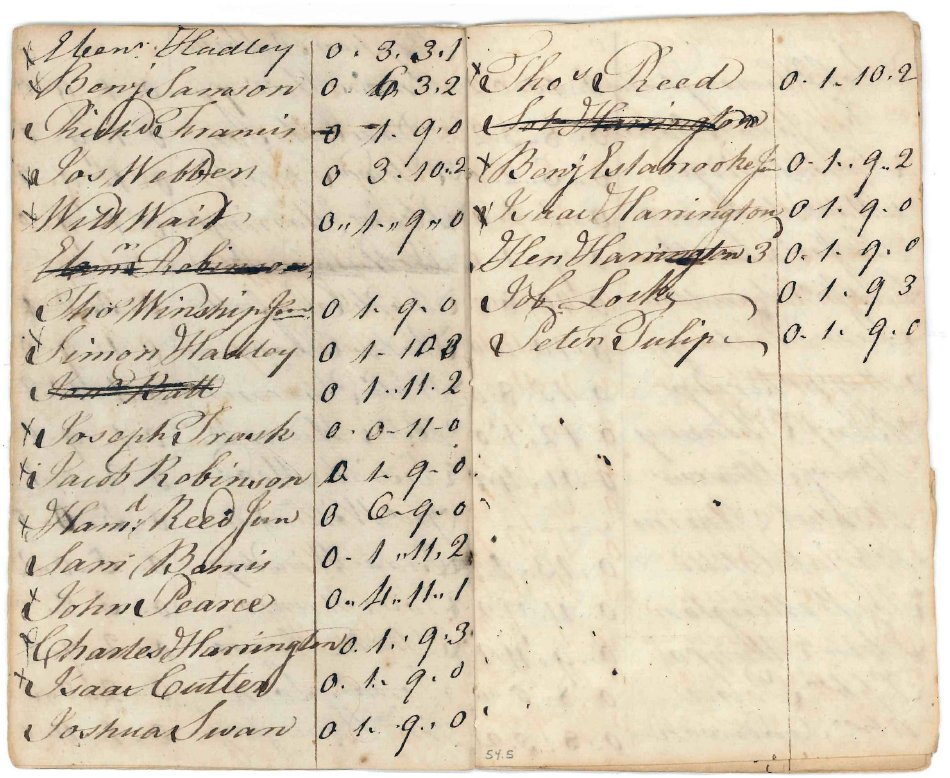 x Eben.r Hadley 0. 3. 3. 1
x Benj Samson 0 6 3. 2
Rich.d Francis 0 1. 9. 0
x Jos. Webber 0 3. 10. 2
x Will Wait 0,, 1-,, 9,, 0
Robinson
Tho.s Winship Jun.r 0 1. 9. 0
x Simon Hadley 0 1. 10. 3
Hall 0 1.. 11. 2
x Joseph Trask 0. 0-11-0
x Jacob Robinson 0 1. 9- 0
x Ham.d Reed Jun 0 6- 9. 0
Sam Bemis 0. 1 ,, 11. 2
x John Pearce 0,, 4,, 11,, 1
x Charles Harrington 0. 1.. 9. 3
x Isaac Cutter 0. 1.. 9. 0
Joshua Swan 0 1. 9.. 0
x Tho.s Reed 0. 1. 10. 2
Harrington
x Benj Estabrooke Jn 0. 1.. 9.. 2
x Isaac Harrington 0 1. 9. 0
Hen Harrington 3 0. 1. 9. 0
Job Locke 0. 1. 9 3
Peter Tulip 0. 1. 9. 0
54.5